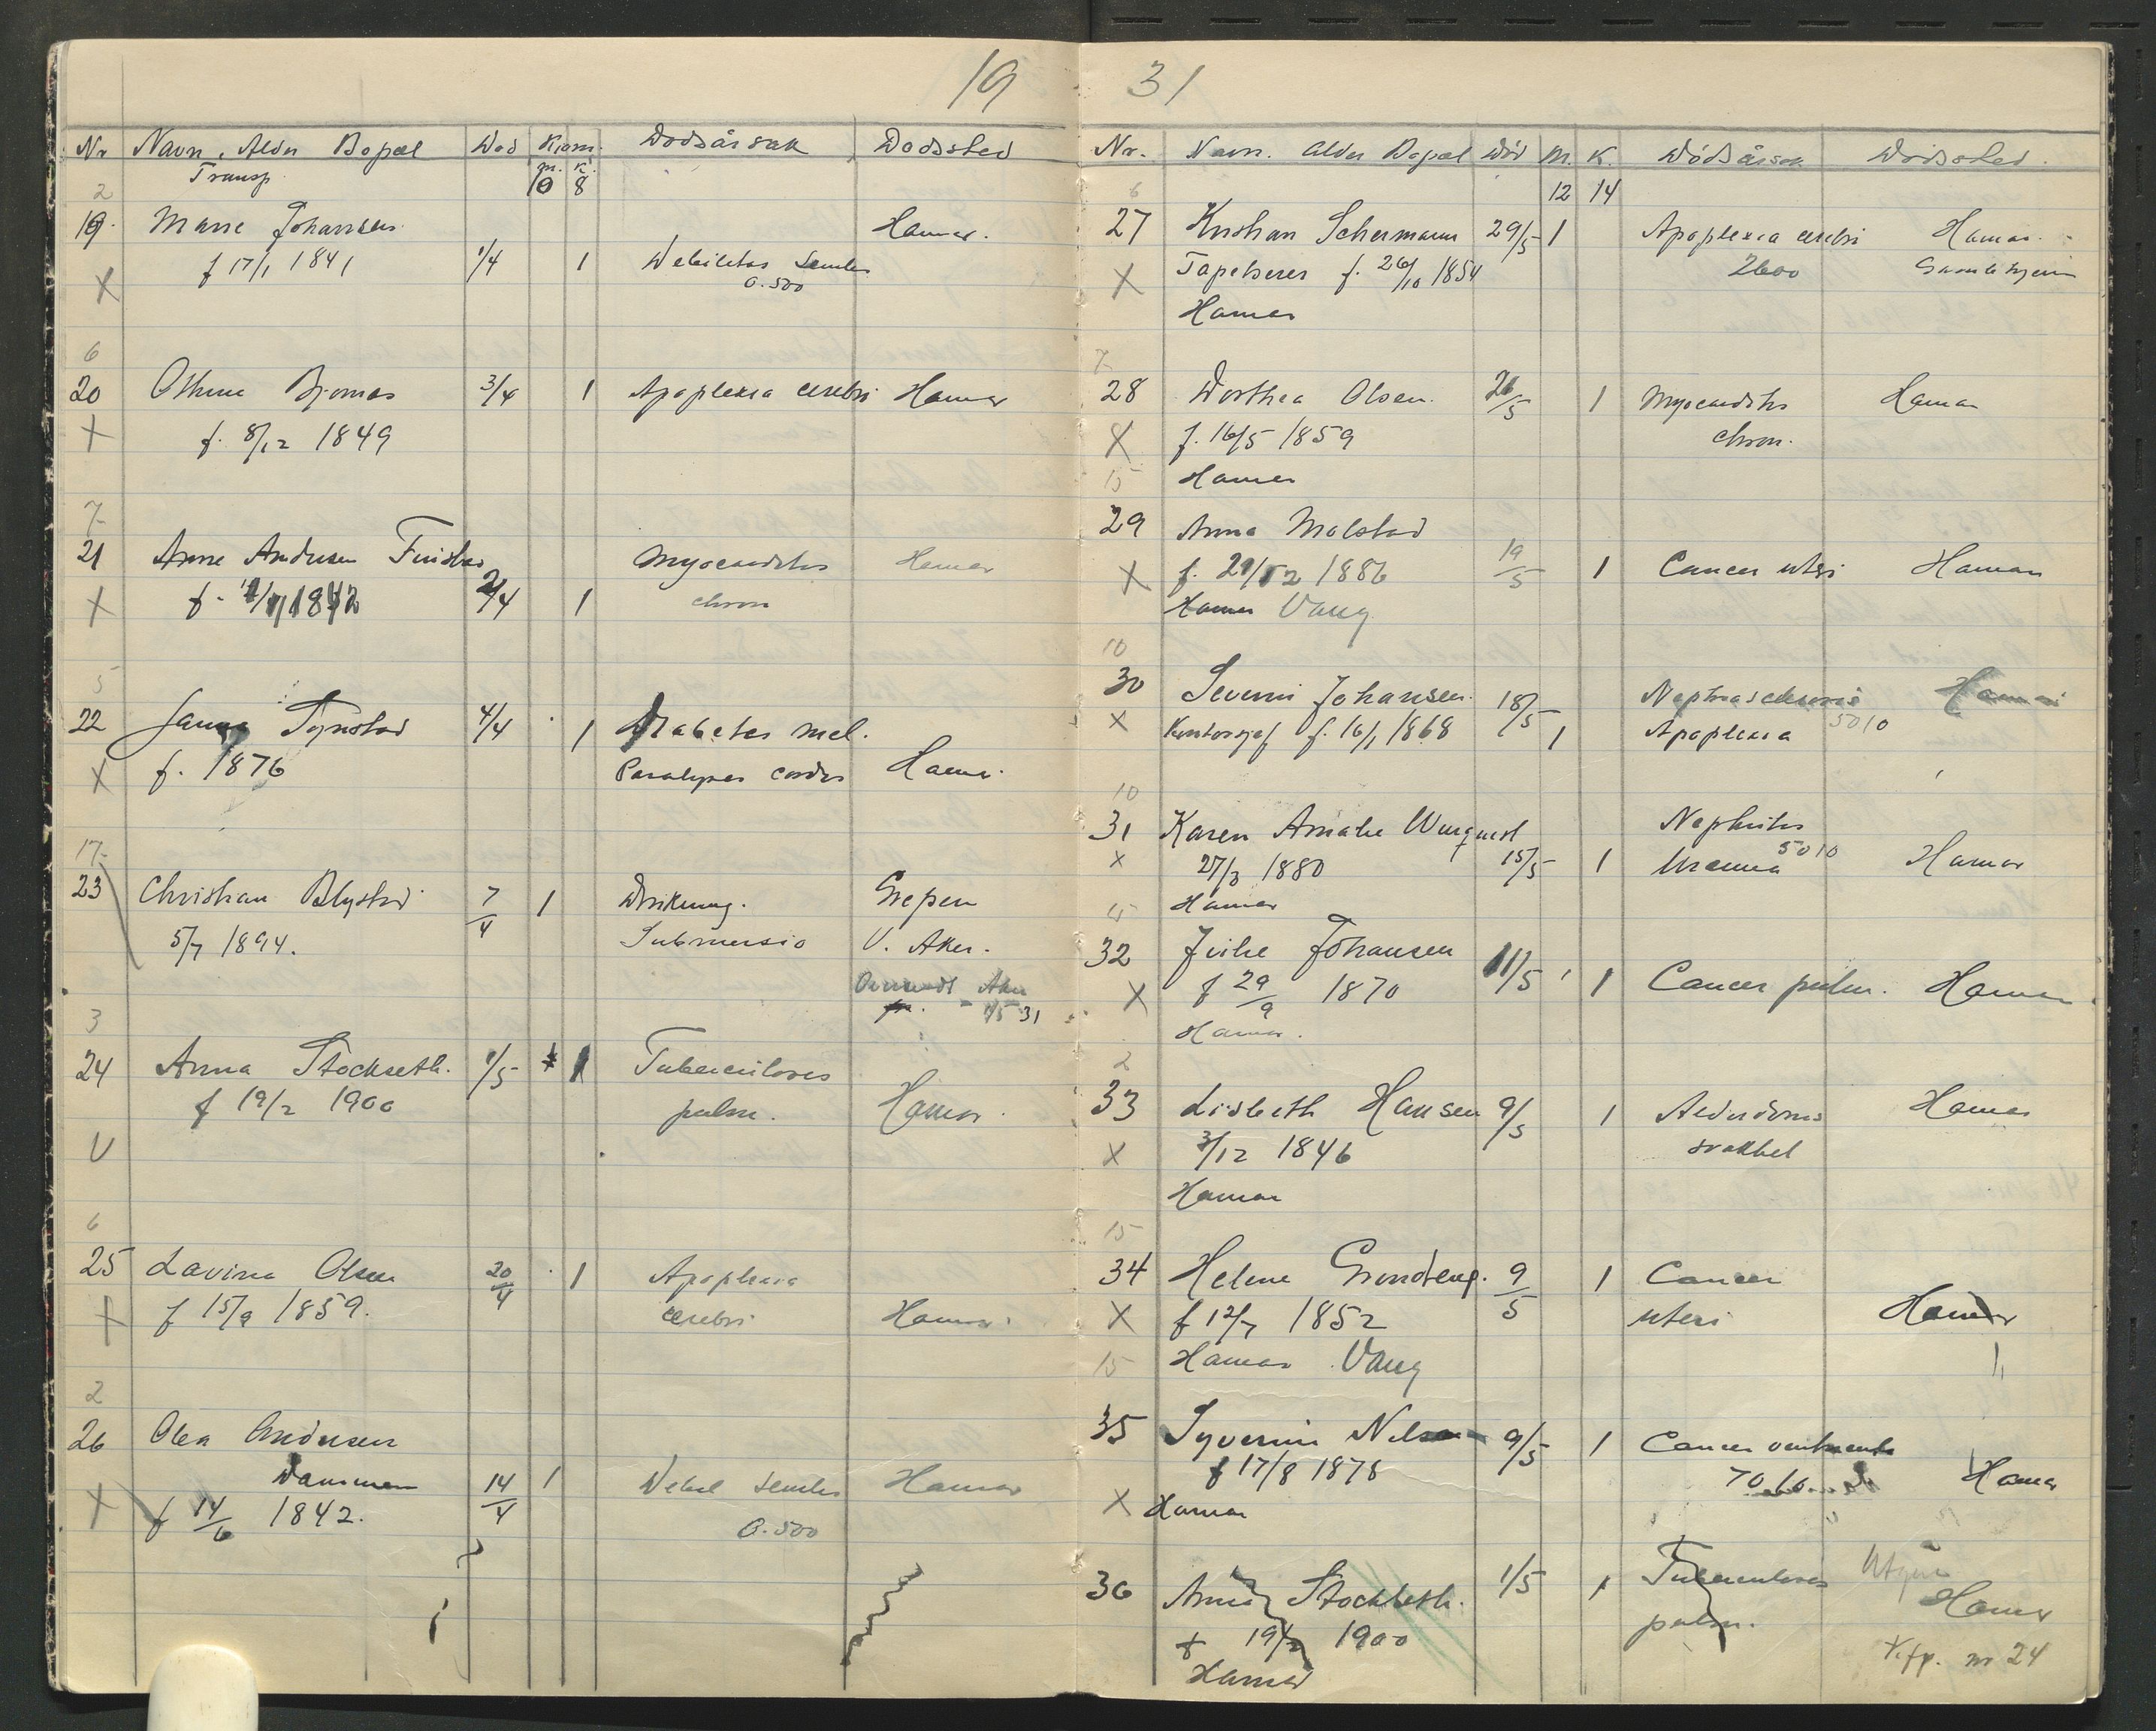 19
Nr Navn, Alder Bopæl Død Kjønn. Dødsårsak Dødssted
Transp. m. k.
2 10 8
19. Marie Johansen Hamar.
X f 17/1 1841 1/4 1 Debilitas senilis
0.500
6
20 Othine 3/4 1 Apoplexia cerebri Hamar
X f. 8/12 1849
7
21 Anne Andersen Myocarditis Hamar
X 2/4 1 chron
5
22 4/4 1 Diabetes mel.
X f. 1876 Paralysis cordis Hamar.
17
23 Christian Blystad 7/4 1 Drukning. Grepen
5/7 1894. Submersio V. Aker.
Aker
1/5 31
3
24 Anna Stockseth. 1/5 1 Tuberculoses
f 19/2 1900 pulm. Hamar.
V
6
25 Lavina Olsen 20/4 1 Apoplexia
X f 15/9 1859. cerebri Hamar.
2
26 Olea Andersen
Dammen 14/4 1 Debil senilis Hamar
X f 14/6 1842. 0.500
31
Nr. Navn. Alder Bopæl Død M. K. Dødsårsak Dødssted.
6 12 14
27 Kristian Schermann 29/5 1 Apoplexia cerebri Hamar.
X Tapetserer f. 26/10 1854 2600 Gamlehjem
Hamar
7
28 Dorthea Olsen. 26/5 1 Myocarditis Hamar
X f. 16/5 1859 chron.
15 Hamar
29 Anna Molstad
X f. 1886 19/5 1 Cancer uteri Hamar
Hamar Vang
10
30 Severin Johansen. 18/5 Hamar
X Kontorsjef f. 16/1 1868 1 Apoplexia 5010
10
31 Karen Amalie Nephritis
X 27/3 1880 15/5 1 Uremia 5010 Hamar
15 Hamar
32 Julie Johansen 11/5 1 Cancer pulm. Hamar.
X f 29/9 1870
Hamar.
2
33 Lisbeth Hansen 9/5 1 Alderdoms Hamar
X 3/12 1846 svakhet
Hamar
15
34 Helene 9/5 1 Cancer
X f 12/7 1852 uteri Hamar
15 Hamar Vang
35 Syverin Nilsen 9/5 1 Cancer ventriculi
f 17/8 1878 Hamar
X Hamar
36 Anna Stockseth. 1/5 1 Tuberculoses Utgår
f 19/2 1900 pulm. Hamar
Hamar Kfr. nr 24